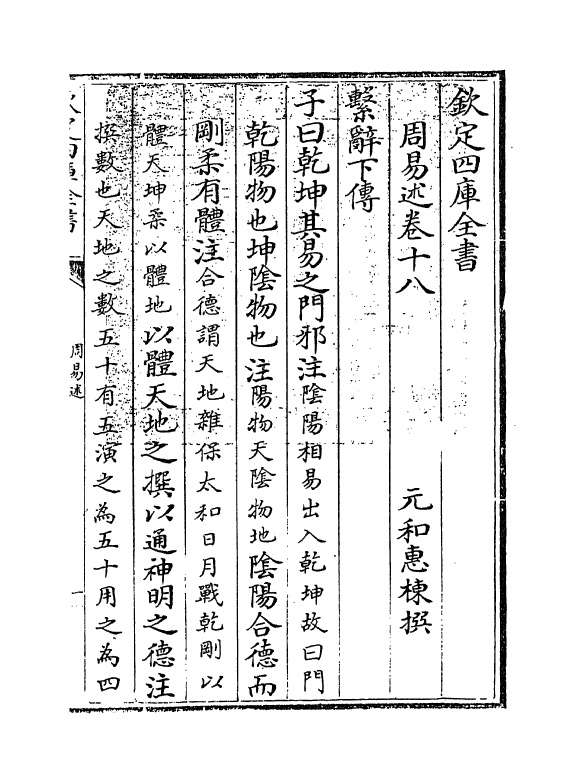 欽定四庫全書
周易述卷十八
元和惠棟撰
繫辭下傳
子曰乾坤其易之門邪注陰陽相易出入乾坤故曰門
乾陽物也坤陰物也注陽物天陰物地陰陽合德而
剛柔有體注合德謂天地雜保太和日月戰乾剛以
體天坤柔以體地以體天地之撰以通神明之德注
撰數也天地之數五十有五演之為五十用之為四
欽定四庫全書
周易述
一